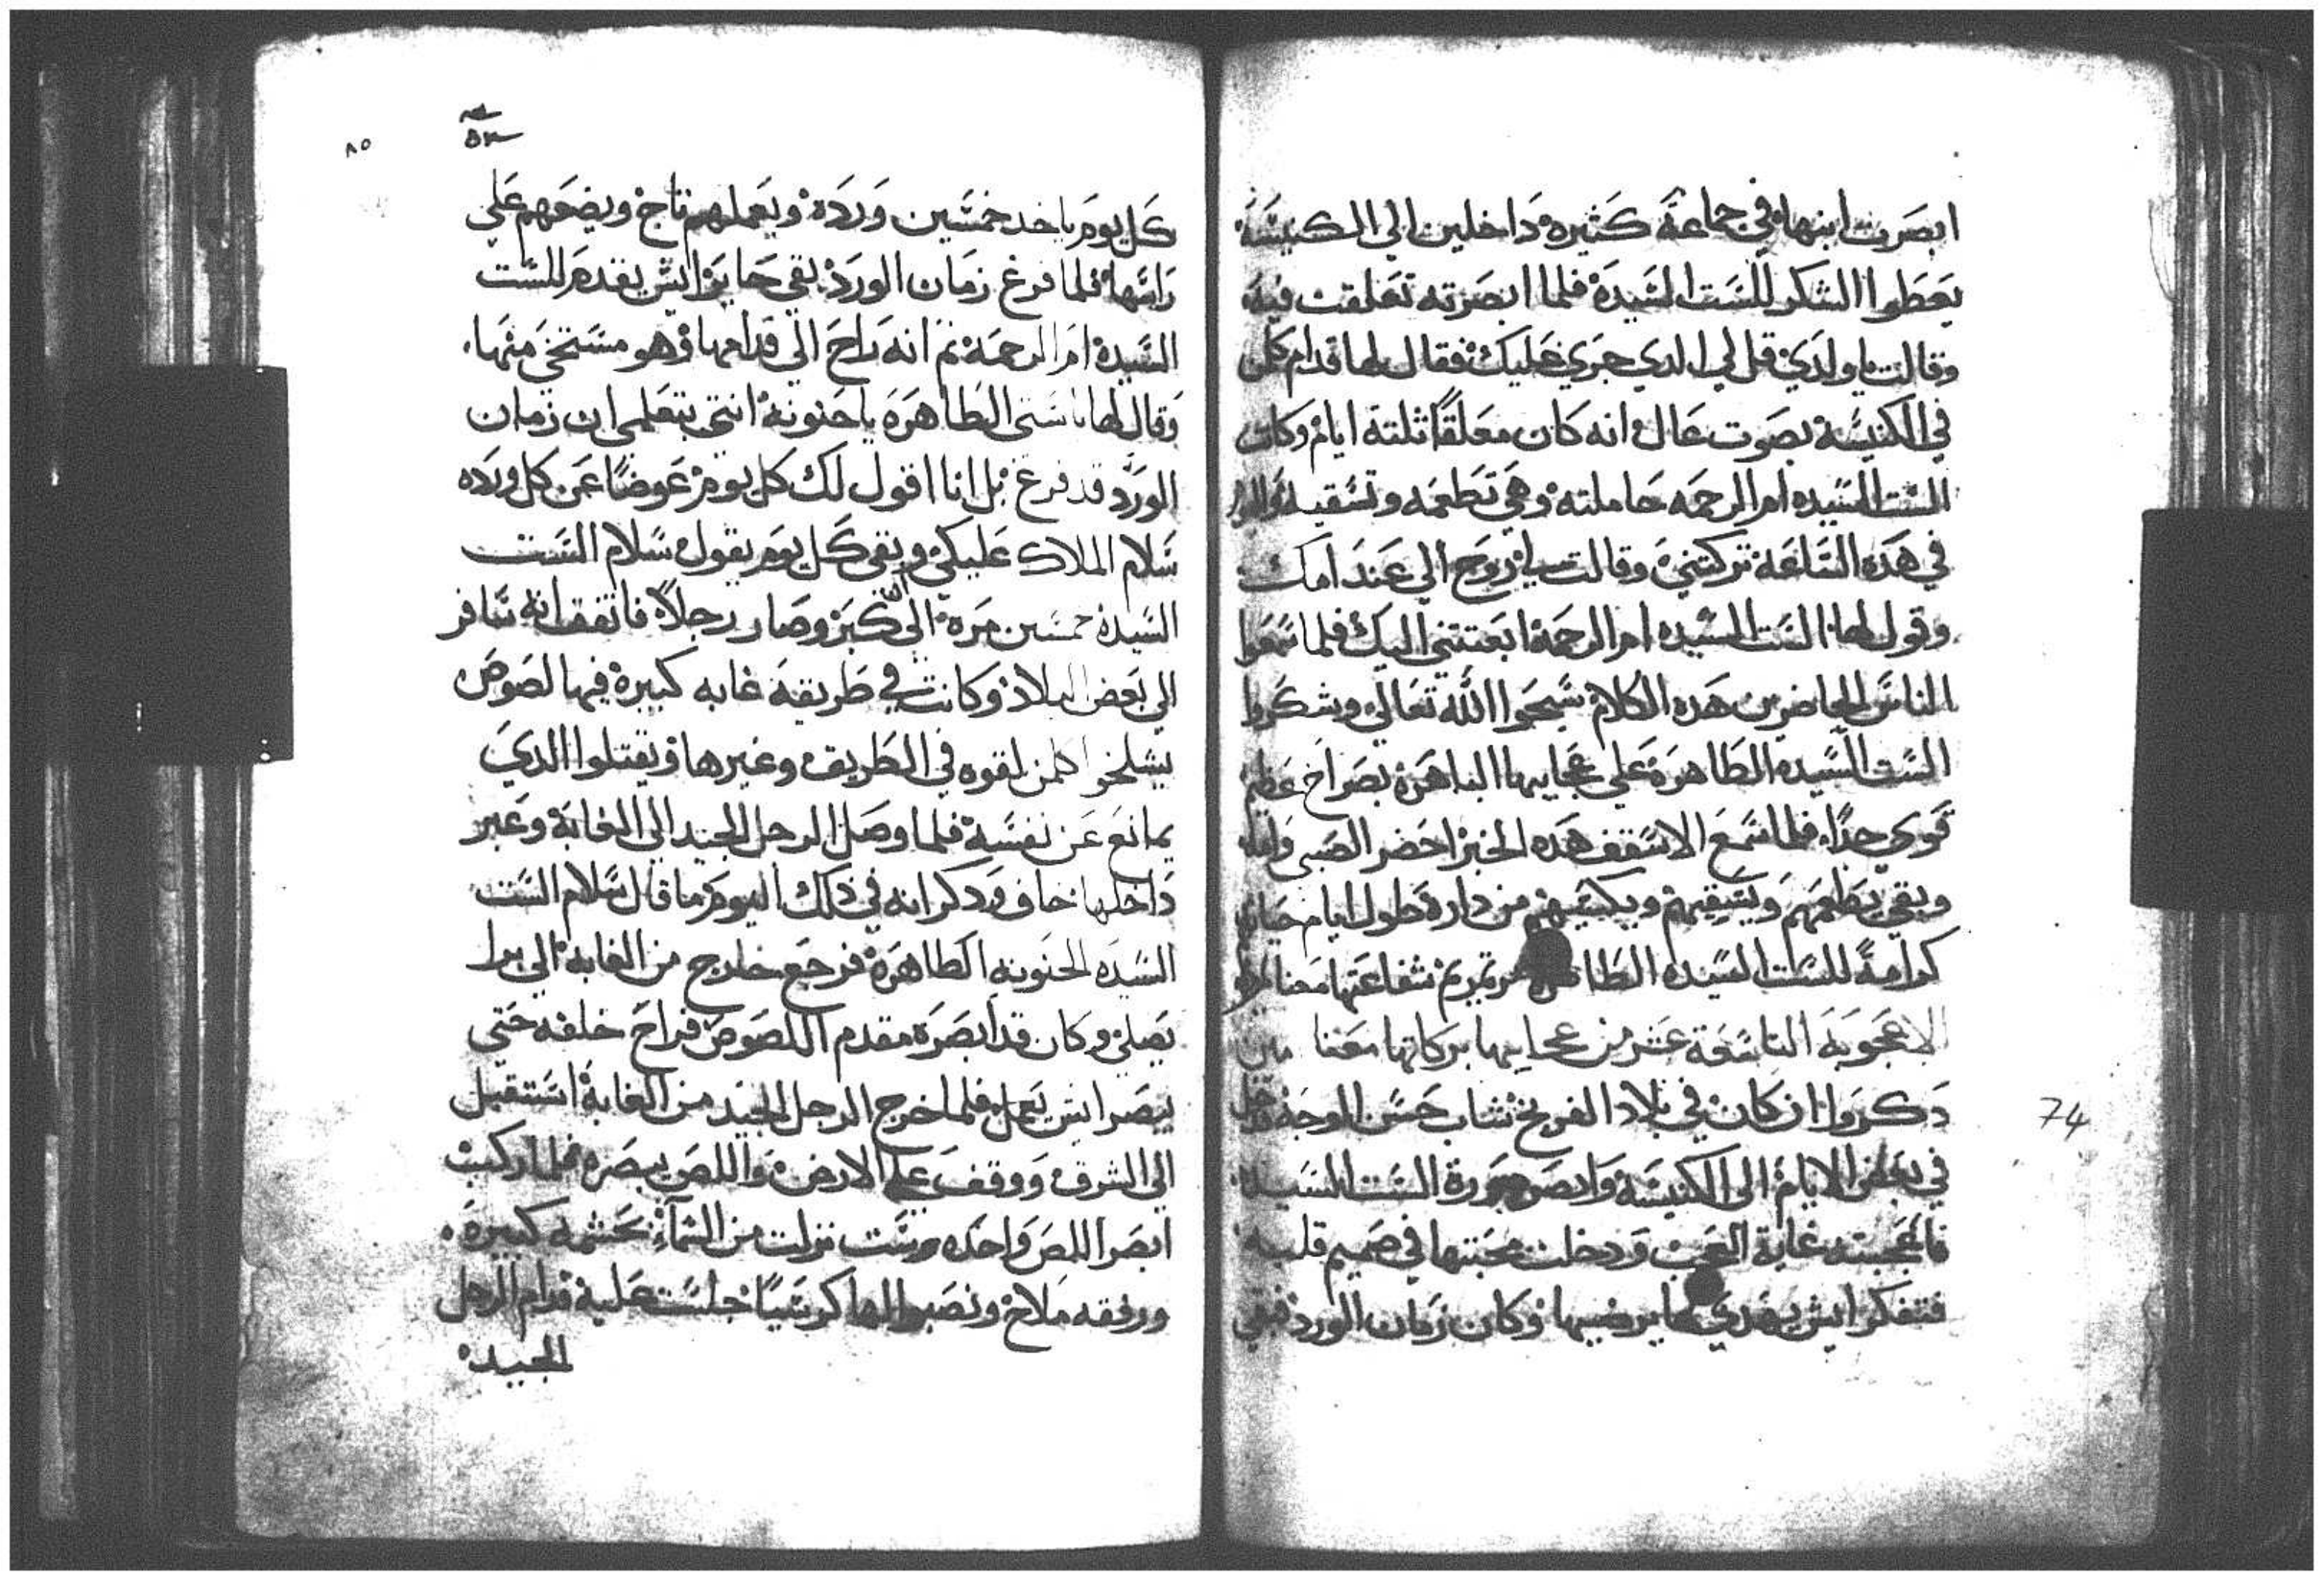 ابصرت ابنها في جماعة كثيرة داخلين الي الكنيسة
يعطوا الشكر للست السيدة فلما ابصرته تعلقت فيه
وقالت يا ولدي قل لي الدي جري عليك فقال لها قدام كلمن
في الكنيسة بصوت عال انه كان معلقا ثلثة ايام وكانت
الست السيده ام الرحمه حاملته وهي تطعمه وتسقيه
في هده الساعة تركتني وقالت لي روح الي عند امك
وقول لها الست السيده ام الرحمة ابعتتني اليك فلما سمعوا
الناس الحاضرين هده الكلام سبحوا الله تعالي وشكروا
الست السيده الطاهرة علي عجايبها الباهرة بصراخ عظيم
قوي جدا فلما سمع الاسقف هده الخبر احضر الصبي وامه
وبقي يطعمهم ويسقيهم ويكسيهم من داره طول ايام حياته
كرامة للست السيده الطاهرة مرتمريم شفاعتها معنا امين
الاعجوبة التاسعة عشر من عجايبها بركاتها معنا امين
دكروا ان كان في بلاد الفرنج شاب حسن الوجه دخل
في بعض الايام الي الكنيسة وابصر صورة الست السيدة
فاعجبته غاية العجب ودخلت محبتها في صميم قلبه
فتفكر ايش يهدي لها يرضيها وكان زمان الورد فبقي
74
٨٥
كل يوم ياخد خمسين وردة ويعملهم تاج ويضعهم علي
راسها فلما فرغ زمان الورد بقي حاير ايش يقدم للست
السيدة ام الرحمة ثم انه راح الي قدامها وهو مستحي منها
وقال لها يا ستي الطاهرة يا حنونة انتي بتعلمي ان زمان
الورد قد فرغ بل انا اقول لك كل يوم عوضا عن كل ورده
سلام الملاك عليكي وبقي كل يوم يقول سلام الست
السيدة خمسين مرة الي ان كبر وصار رجلا فاتفق انه سافر
الي بعض البلاد وكانت في طريقه غابه كبيرة فيها لصوص
يشلحوا كلمن لقوه في الطريق وغيرها ويقتلوا الدي
يمانع عن نفسه فلما وصل الرجل الجيد الي الغابة وعبر
داخلها خاف ودكر انه في دلك اليوم ما قال سلام الست
السيده الحنونه الطاهرة فرجع خارج من الغابة الي برا
يصلي وكان قد ابصره مقدم اللصوص فراح خلفه حتي
يبصر ايش يعمل فلما خرج الرجل الجيد من الغابة استقبل
الي الشرق ووقف علي الارض واللص يبصره فلما ركبت
ابصر اللص واحده ست نزلت من السماء بحشمه كبيرة
ورفقه ملاح ونصبوا لها كرسيا جلست عليه قدام الرجل
الجيد